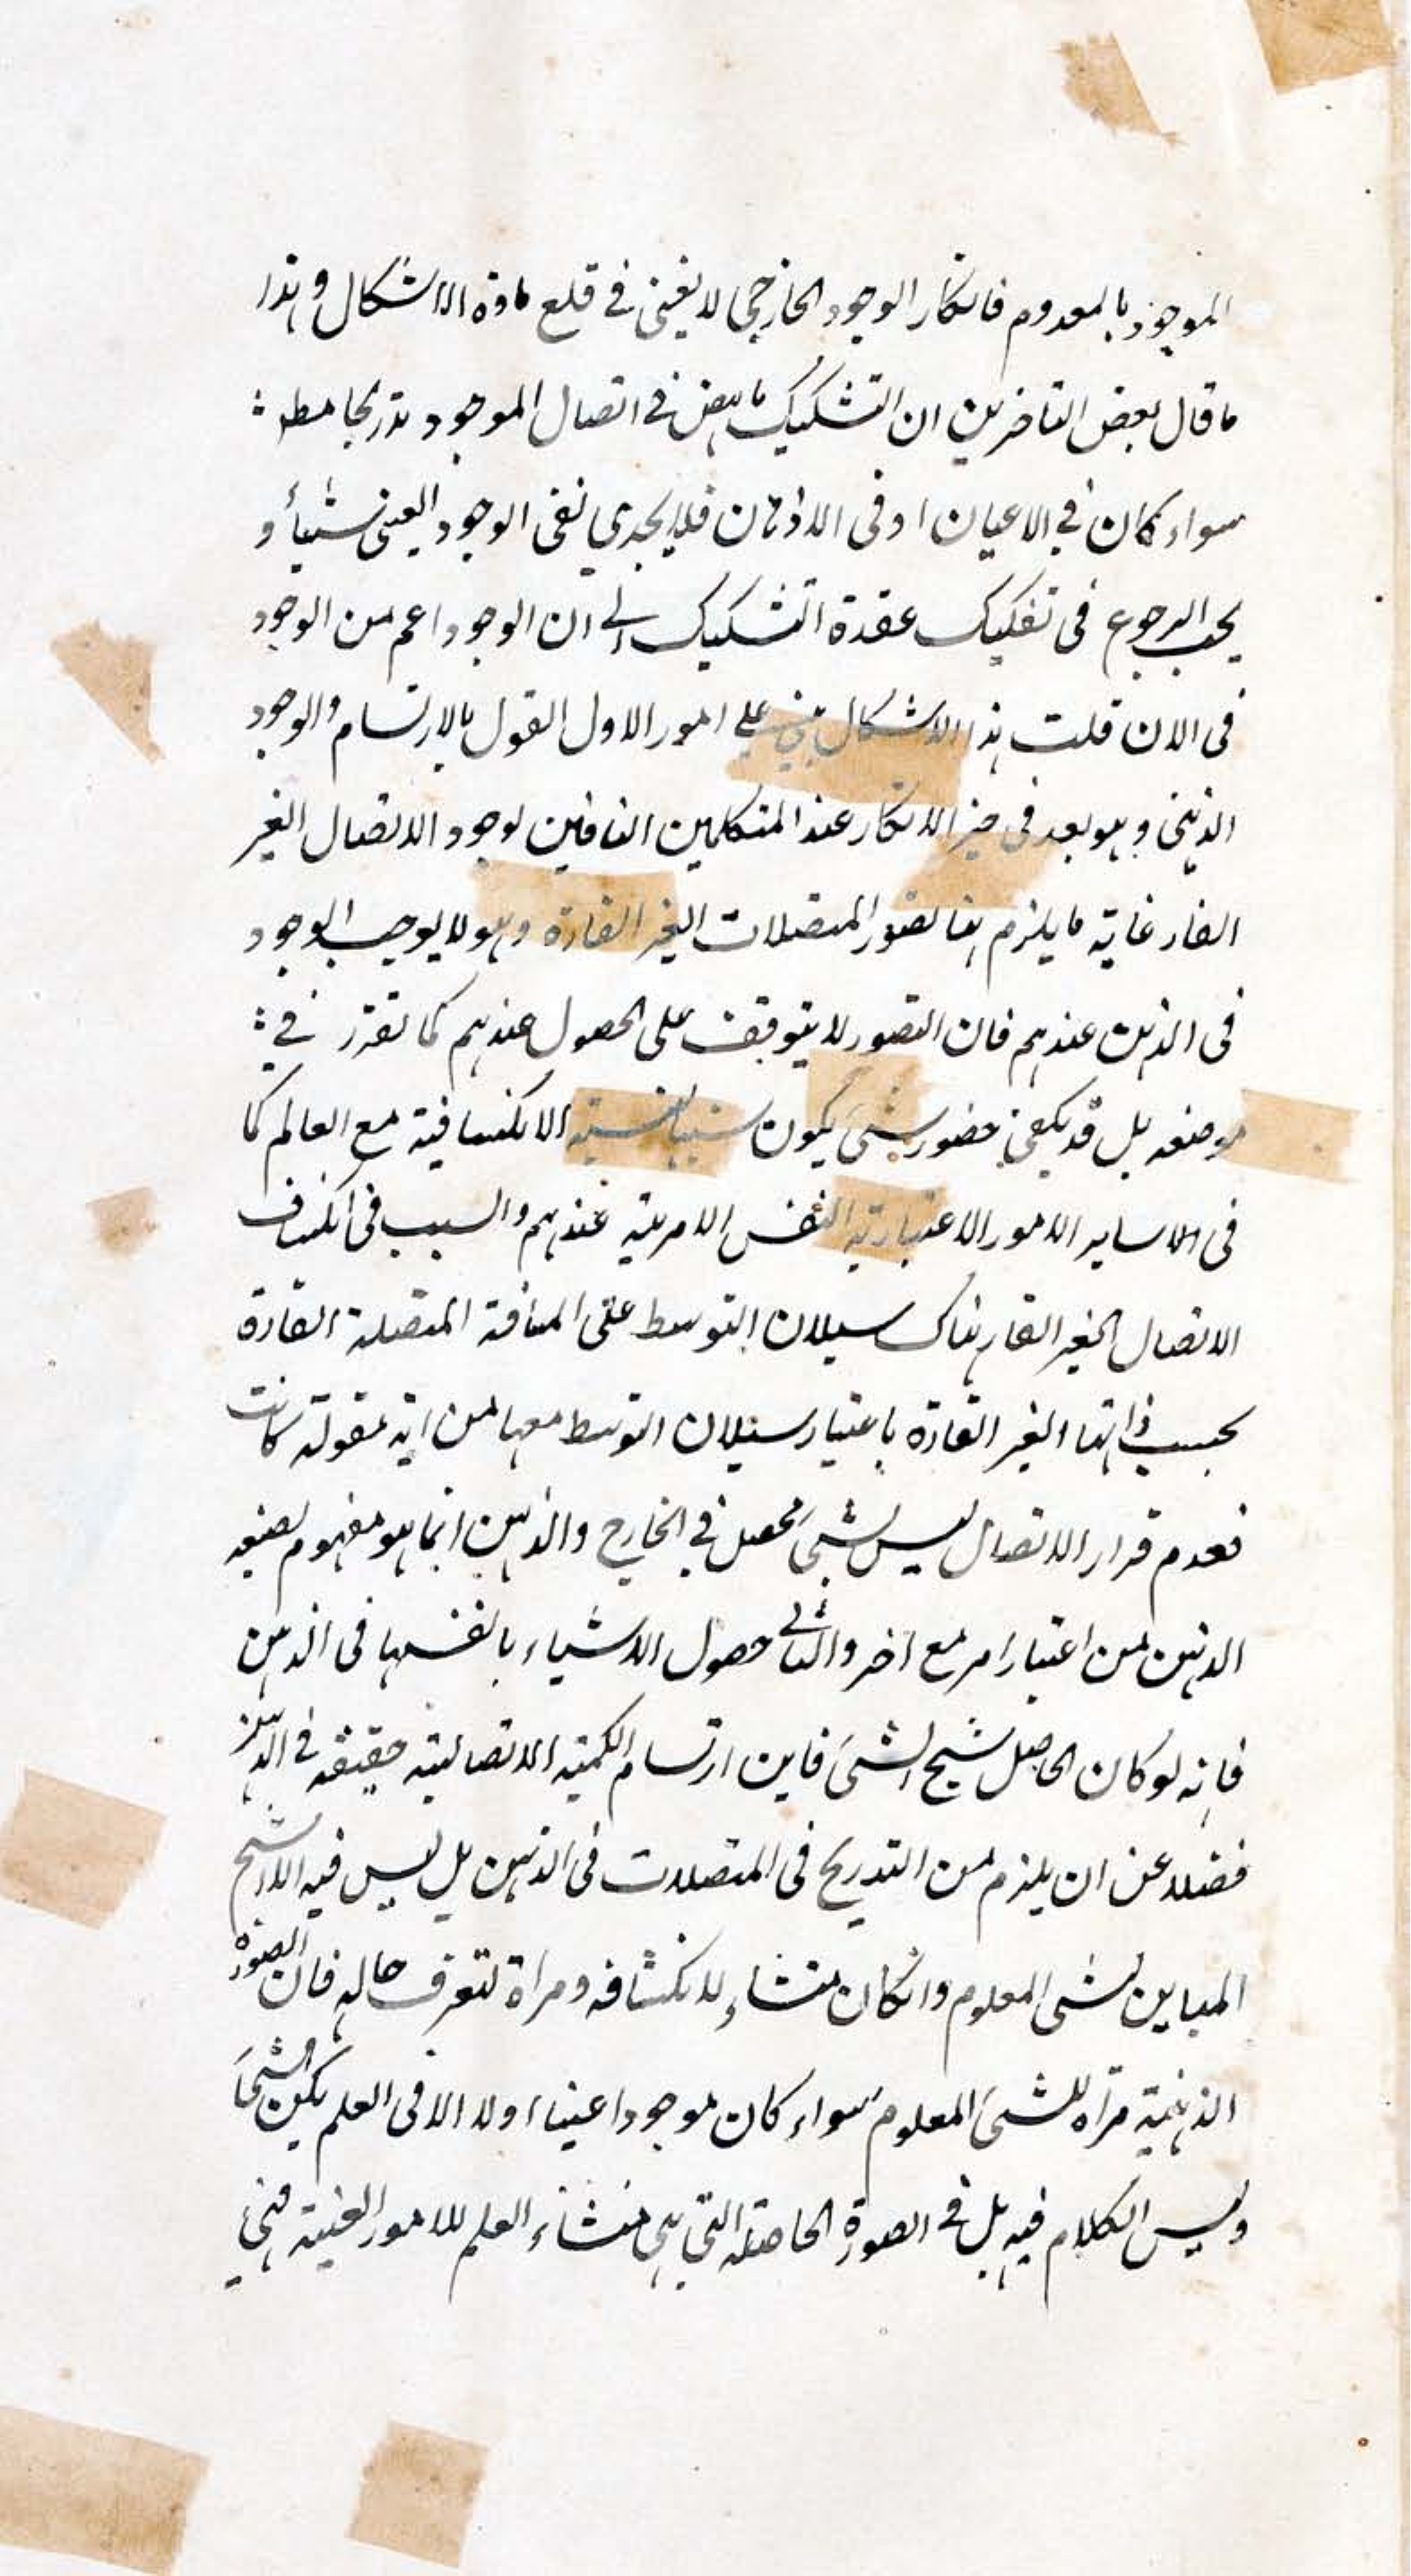 الموجود بالمعدوم فانكار الوجود الخارجى لا يغنى فى قلع مادة الاشكال وهذا
ما قال بعض المتأخرين ان التشكيك ناهض فى اتصال الموجود تدريجا مط
سواء كان فى الاعيان او فى الاذهان فلا يجدى نفى الوجود العينى شيأ و
يجب الرجوع فى تفكيك عقدة التشكيك الى ان الوجود اعم من الوجود
فى الان قلت هذا الاشكال مبنى على امور الاول القول بالارتسام والوجود
الذهنى وهو بعد فى حيز الانكار عند المتكلمين النافين لوجود الاتصال الغير
القار غاية ما يلزم هنا تصور المتصلات الغير القارة وهو لا يوجب الوجود
فى الذهن عندهم فان التصور لا يتوقف على الحصول عندهم كما تقرر فى
موضعه بل قد يكفى حضور شئ يكون سببا لنسبته الانكشافية مع العالم كما
فى سایر الامور الاعتبارية النفس الامرية عندهم والسبب فى انكشاف
الاتصال الغير القار هناك سيلان التوسط على المسافة المتصلة القارة
بحسب ذاتها الغير القارة باعتبار سيلان التوسط معها من اية مقولة كانت
فعدم قرار الاتصال ليس بشئ محصل فى الخارج والذهن انما هو مفهوم يصنعه
الذهن من اعتبار امر مع اخر والثانى حصول الاشياء بانفسها فى الذهن
فانه لو كان الحاصل شبح الشئ فاين ارتسام الكمية الاتصالية حقيقة فى الذهن
فضلا عن ان يلزم من التدريج فى المتصلات فى الذهن بل ليس فيه الا شبح
المباين لشئ المعلوم وانكان منشاء لانكشافه ومراة لتعرف حاله فان الصورة
الذهنية مرآة للشئ المعلوم سواء كان موجودا عينا اولا الا فى العلم بكون الشئ
وليس الكلام فيه بل فى الصورة الحاصلة التى هى منشاء العلم للامور العينية فهى